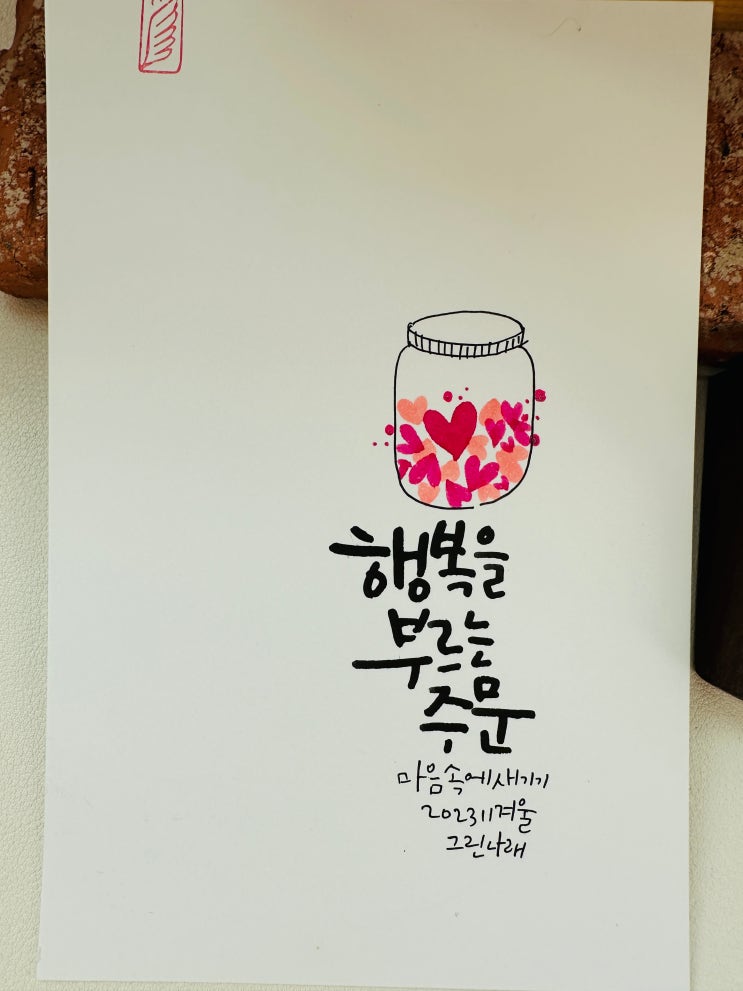 행복을
부르는
주문
마음속에새기기
202311겨울
그린나래